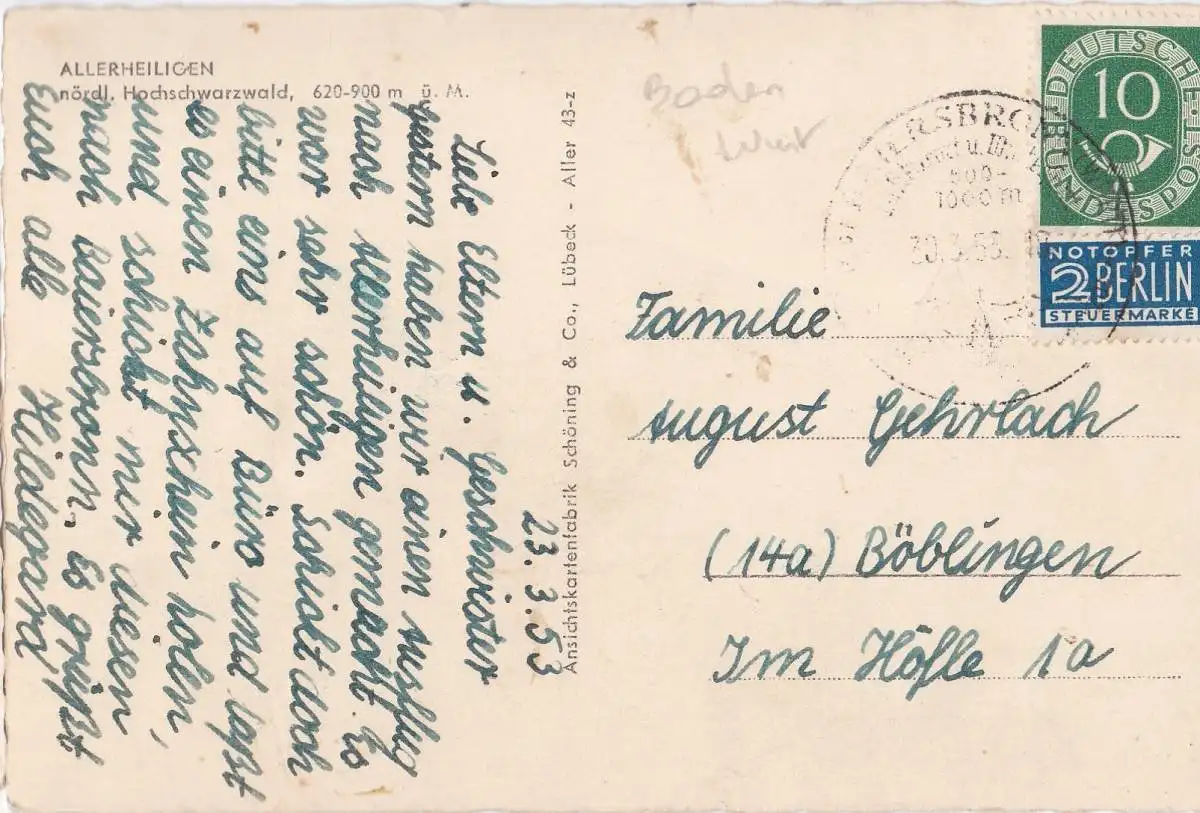 ALLERHEILIGEN
nördl. Hochschwarzwald, 620-900 m ü. M.
23. 3. 53
Liebe Eltern u. Geschwister
gestern haben wir einen Ausflug
nach Allerheiligen gemacht. Es
war sehr schön. Schickt doch
bitte eins auf Büro und laßt
es einen Zahnschein holen,
und schickt mir diesen
nach Baiersbronn. Es grüßt
Euch alle Hildegard
Ansichtskartenfabrik Schöning & Co., Lübeck - Aller 43-z
Baden
DEUTSCHE BUNDESPOST
10
NOTOPFER
2 BERLIN
STEUERMARKE
1000 m
30.3.53
Familie
August Gehrlach
(14a) Böblingen
Im Höfle 1a